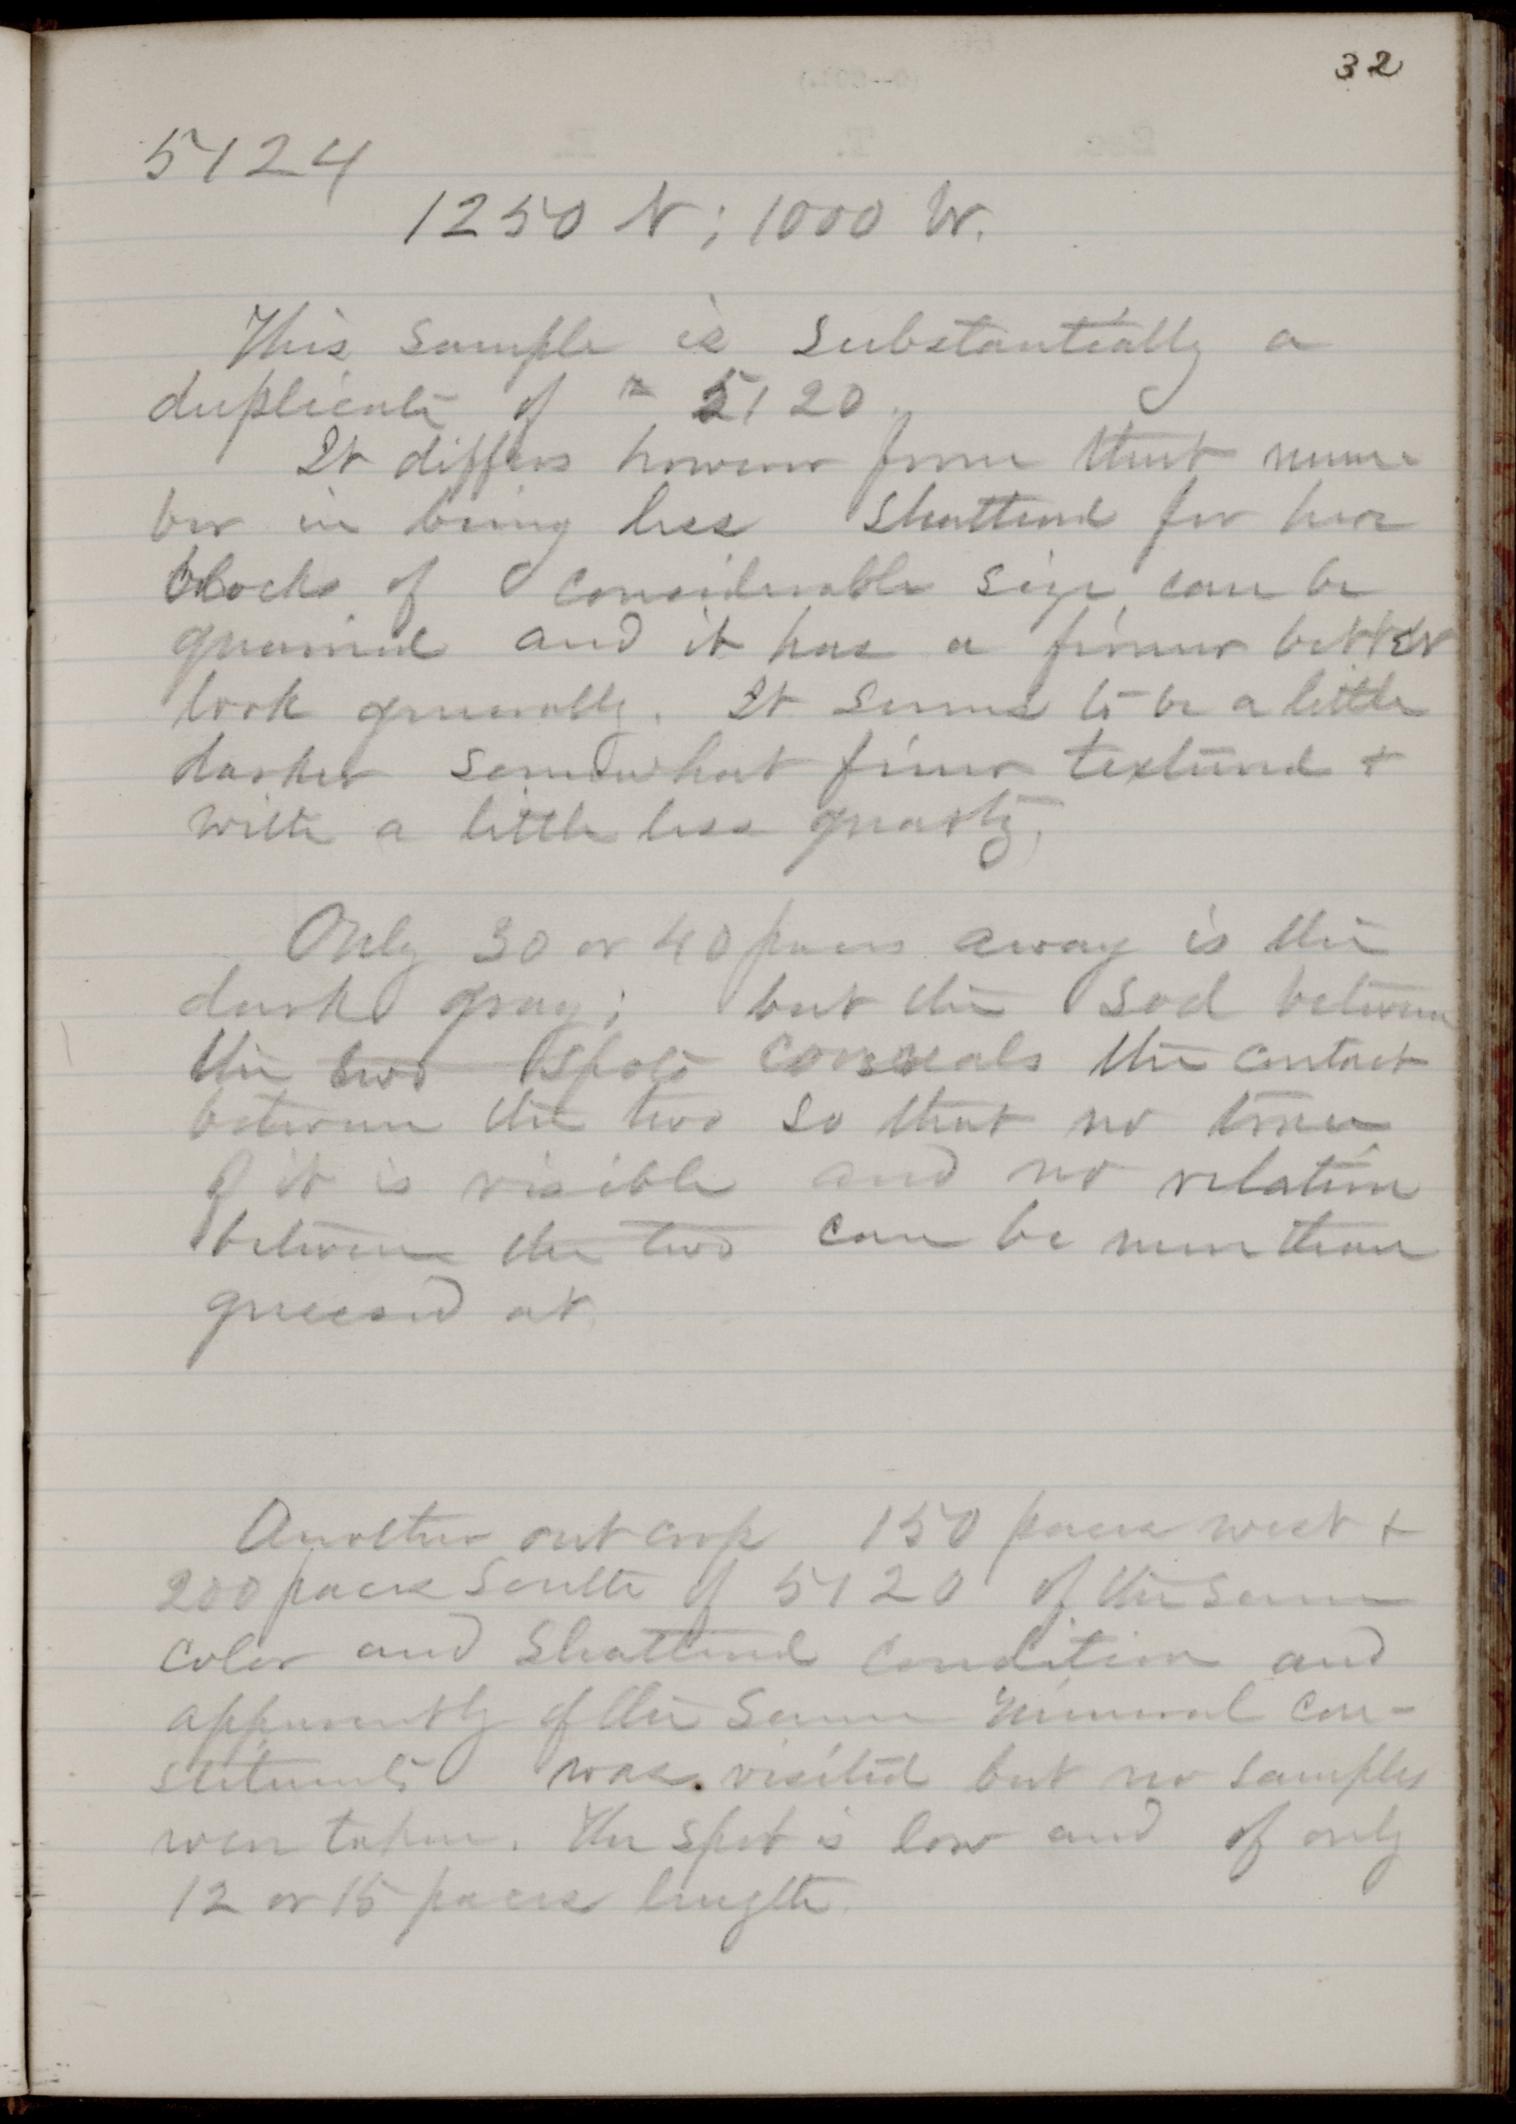 32
5124
1250 N; 1000 W.
This sample is substantially a
duplicate of 5120.
It differs however from that num-
ber in being less shattered for here
blocks of considerable size can be
quarried and it has a firmer better
look generally. It seems to be a little
darker somewhat finer textured +
with a little less quartz.
Only 30 or 40 paces away is the
dark gray; but the sod between
the two spots conceals the contact
between the two so that no trace
of it is visible and no relation
between the two can be more than
guessed at.
Another outcrop 150 paces west +
200 paces south of 5120 of the same
color and shattered condition and
apparently of the same mineral con-
stituents was visited but no samples
were taken. The spot is low and of only
12 or 15 paces length.